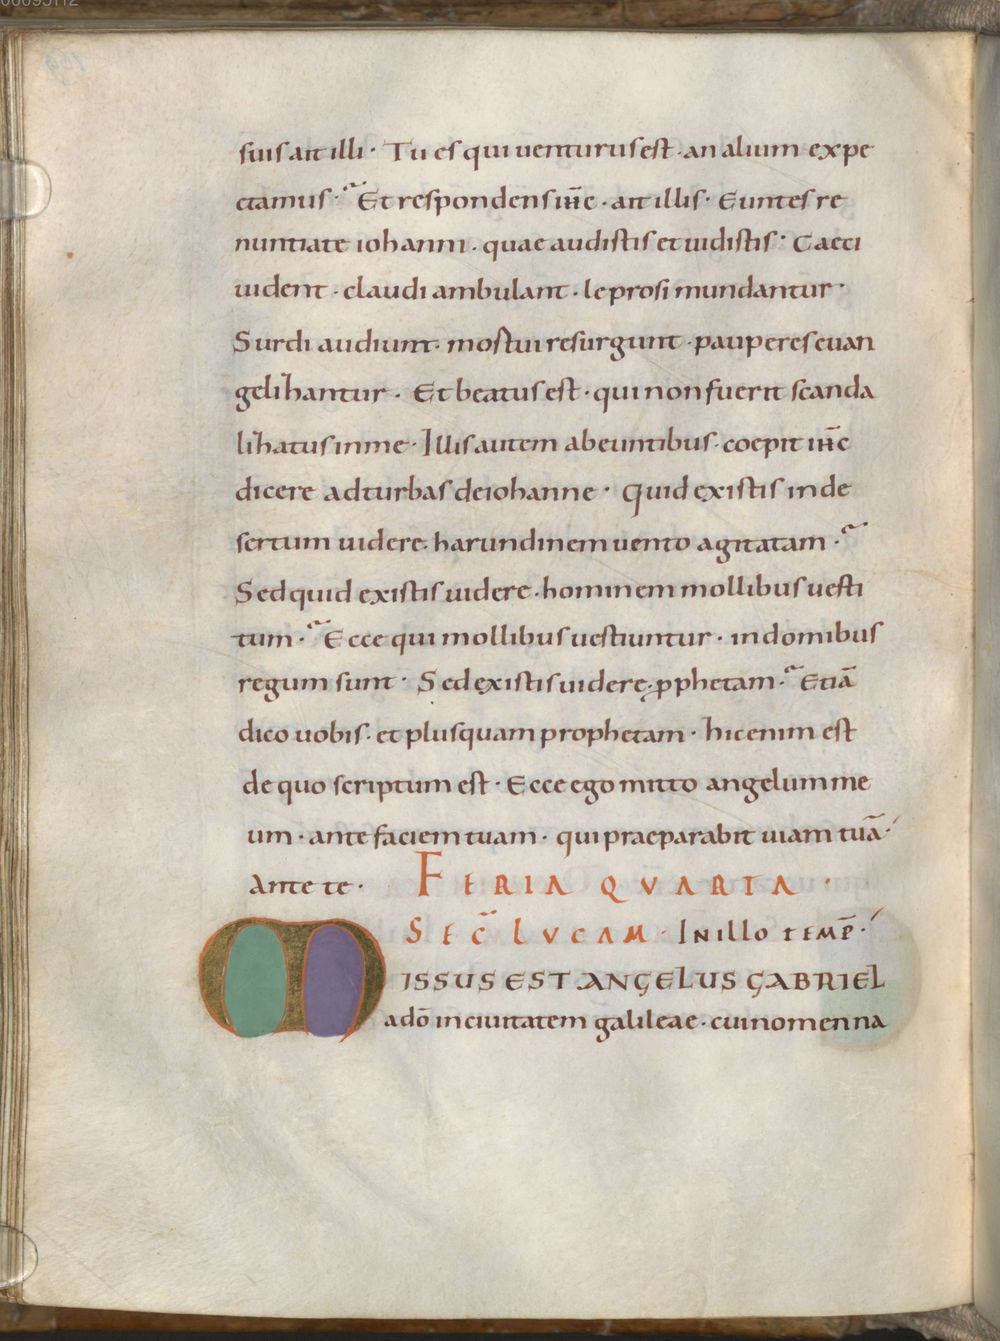 suis ait illi · Tu es qui uenturus est · an alium expe
ctamus · Et respondens ihc̄ · ait illis · Euntes re
nuntiate iohanni · quae audistis et uidistis · Caeci
uident · claudi ambulant · leprosi mundantur ·
Surdi audiunt · mortui resurgunt · pauperes euan
gelizantur · Et beatus est · qui non fuerit scanda
lizatus in me · Illis autem abeuntibus · coepit ihc̄
dicere ad turbas de iohanne · Quid existis in de
sertum uidere · harundinem uento agitatam ·
Sed quid existis uidere · hominem mollibus uesti
tum · Ecce qui mollibus uestiuntur · in domibus
regum sunt · Sed existis uidere · ꝓphetam · Etiā
dico uobis · et plus quam prophetam · hic enim est
de quo scriptum est · Ecce ego mitto angelum me
um · ante faciem tuam · qui praeparabit uiam tuā ·
Ante te · FERIA QVARTA ·
SEC̄ LVCAM · IN illo TEMP̄ ·
MISSUS EST ANGELUS GABRIEL
a dō in ciuitatem galileae · cui nomen na